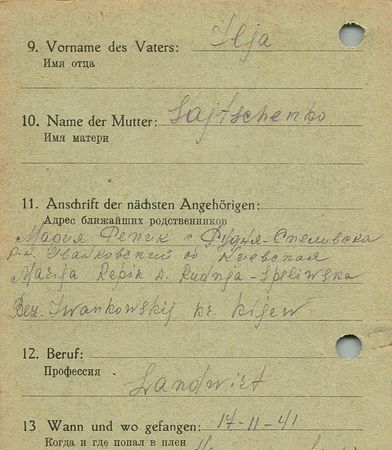 9. Vorname des Vaters: Ilja
Имя отца
10. Name der Mutter: Sajtschenko
Имя матери
11. Anschrift der nächsten Angehörigen:
Адрес ближайших родственников
Мария Репик с Рудня-Спеливска
р-н Иванковский об Киевская
Marija Repik D. Rudnja-Speliwska
Bez. Iwankowskij kr. Kijew
12. Beruf:
Профессия Landwirt
13 Wann und wo gefangen: 17-11-41
Когда и где попал в плен